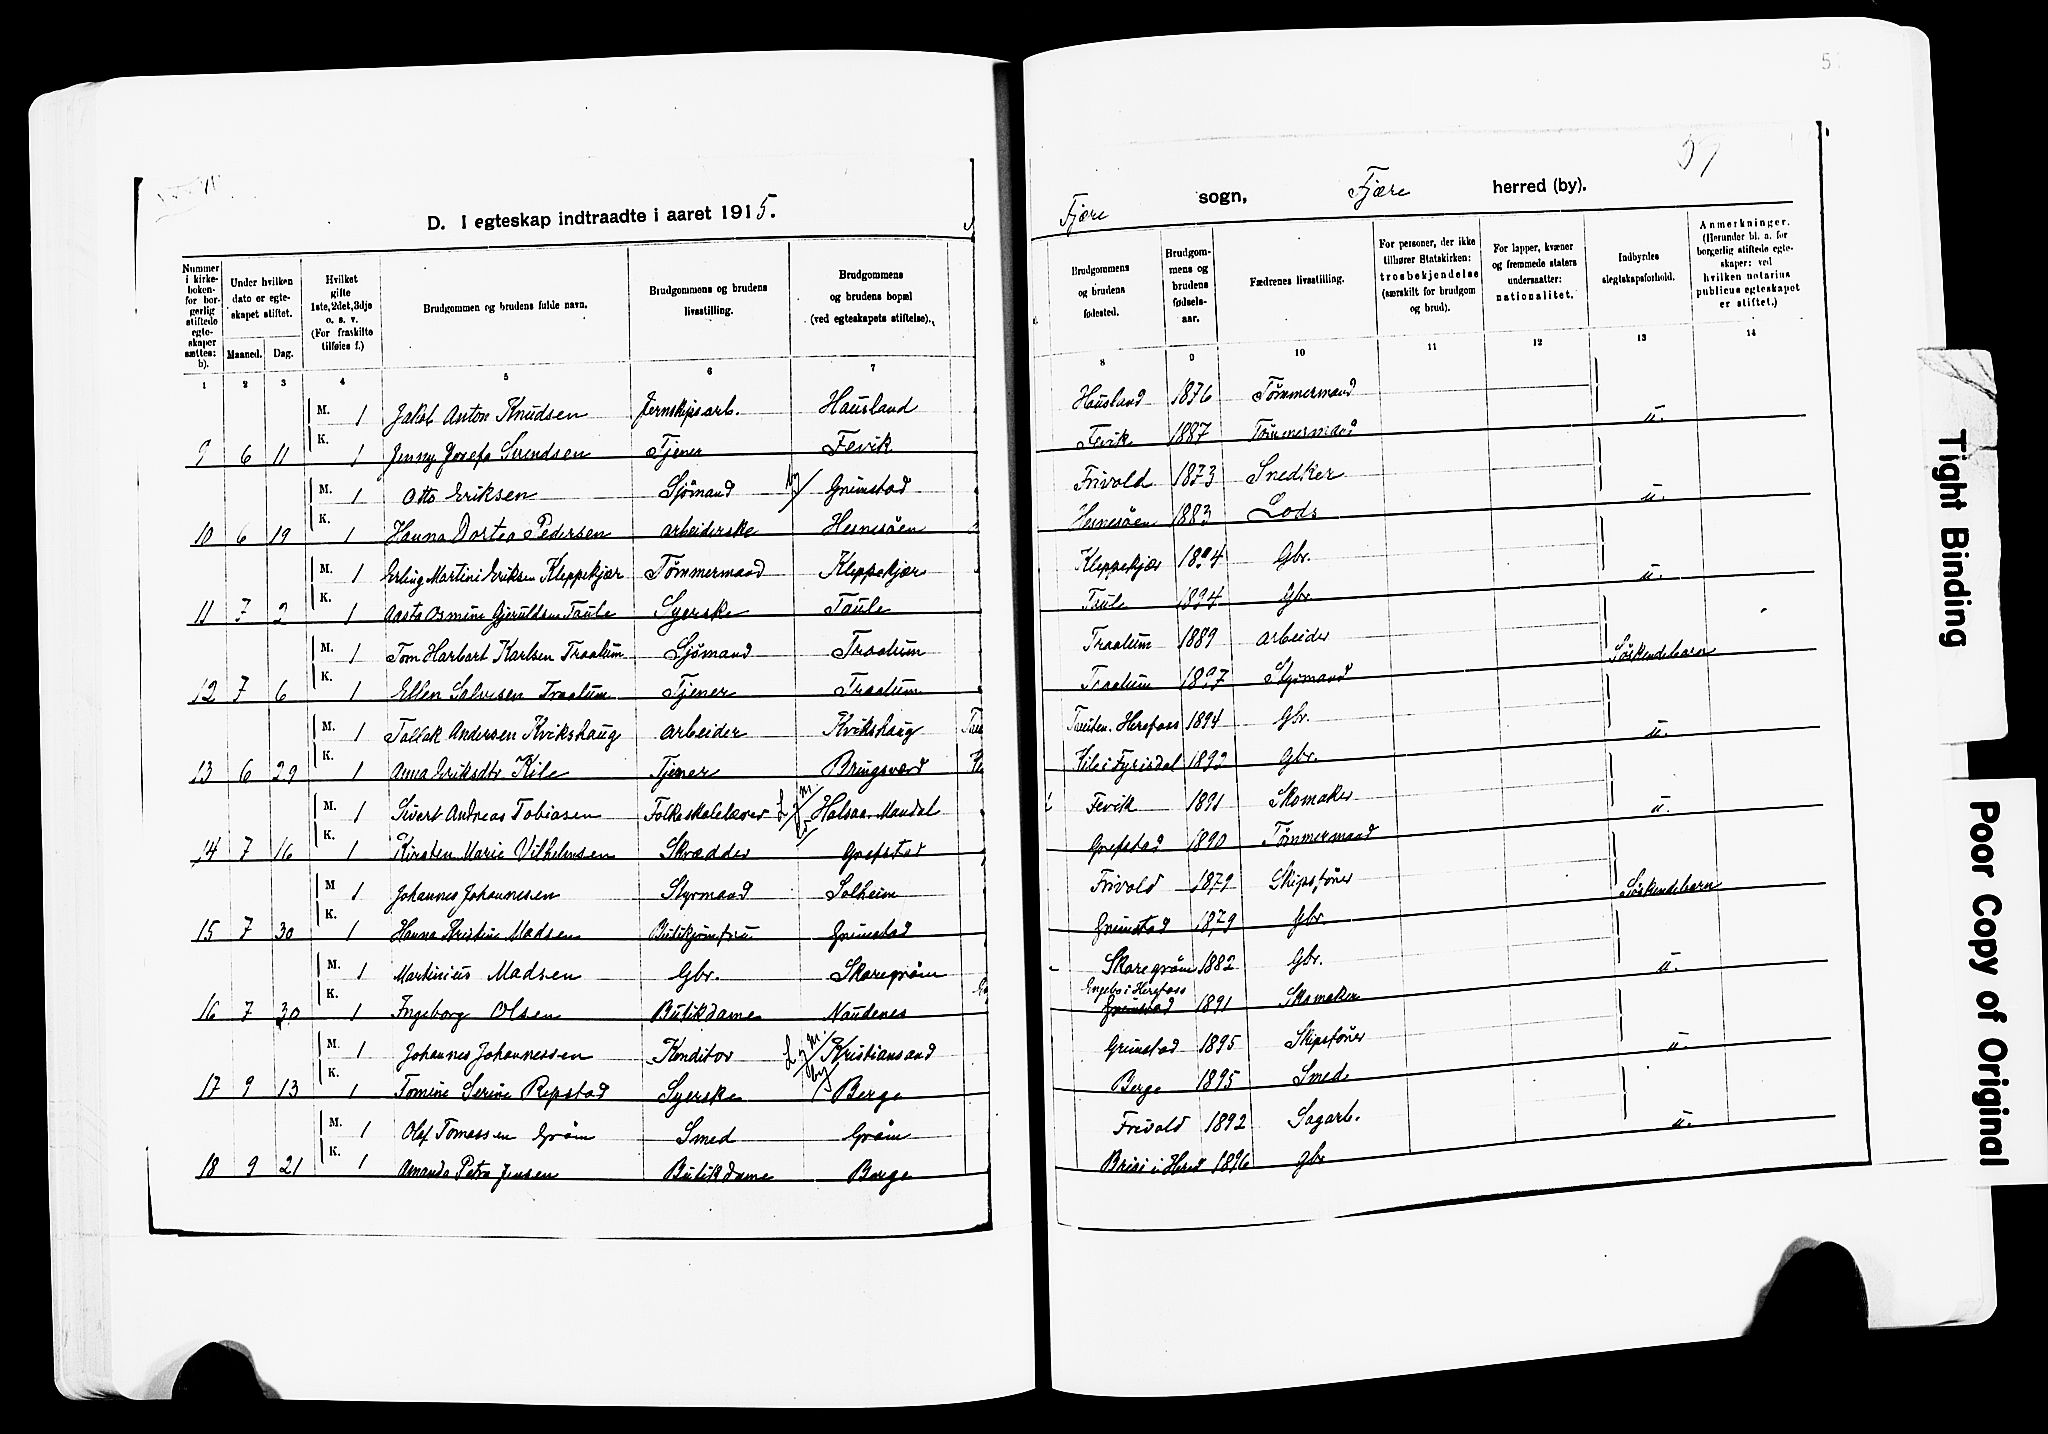 D. I egteskap indtraadte i aaret 1915.
Fjære sogn, Fjære herred (by).
59
Nummer i kirkeboken; for borgerlig stiftede egteskaper sættes: b).
Under hvilken dato er egteskapet stiftet.
Maaned. Dag.
Hvilket gifte 1ste, 2det, 3dje o. s. v. (For fraskilte tilføies f.)
Brudgommen og brudens fulde navn.
Brudgommens og brudens livsstilling.
Brudgommens og brudens bopæl (ved egteskapets stiftelse).
Brudgommens og brudens fødested.
Brudgommens og brudens fødselsaar.
Fædrenes livsstilling.
For personer, der ikke tilhører Statskirken: trosbekjendelse (særskilt for brudgom og brud).
For lapper, kvæner og fremmede staters undersaatter: nationalitet.
Indbyrdes slegtskapsforhold.
Anmerkninger. (Herunder bl. a. for borgerlig stiftede egteskaper: ved hvilken notarius publicus egteskapet er stiftet.)
1 2 3 4 5 6 7 8 9 10 11 12 13 14
M. 1 Jakob Anton Knudsen Jernskipsarb. Hausland Hausland 1876 Tømmermand
9 6 11 K. 1 Jenny Josefa Svendsen Tjener Fevik Fevik 1887 Tømmermand u.
M. 1 Otto Eriksen Sjømand by Grimstad Frivold 1873 Snedker
10 6 19 K. 1 Hanna Dortea Pedersen arbeiderske Hesnesøen Hesnesøen 1883 Lods u.
M. 1 Erling Martini Eriksen Kleppekjær Tømmermand Kleppekjær Kleppekjær 1894 Gbr.
11 7 2 K. 1 Aasta Osmine Gjeruldsen Taule Syerske Taule Taule 1894 Gbr. u.
M. 1 Tom Harbart Karlsen Traalum Sjømand Traalum Traalum 1889 arbeider
12 7 6 K. 1 Ellen Salvesen Traalum Tjener Traalum Traalum 1897 Styrmand Søskendebarn
M. 1 Tallak Andersen Kvikshaug arbeider Kvikshaug Herefoss 1894 Gbr.
13 6 29 K. 1 Anna Eriksdtr Kile Tjener Bringsværd Kile i Fyrisdal 1892 Gbr. u.
M. 1 Sivert Andreas Tobiasen Folkeskolelærer Halsaa. Mandal Fevik 1891 Skomaker
14 7 16 K. 1 Kirsten Marie Vilhelmsen Skrædder Grefstad Grefstad 1890 Tømmermand u.
M 1 Johannes Johannesen Styrmand Solheim Frivold 1879 Skipsfører
15 7 30 K. 1 Hanna Kristine Madsen Butikjomfru Grimstad Grimstad 1879 Gbr. Søskendebarn
M. 1 Martinius Madsen Gbr. Skaregrøm Skaregrøm 1882 Gbr.
16 7 30 K. 1 Ingeborg Olsen Butikdame Naudenes Engebo i Herefoss Grimstad 1891 Skomaker u.
M. 1 Johannes Johannessen Konditor by Kristiansand Grimstad 1895 Skipsfører
17 9 13 K. 1 Tomine Serine Repstad Syerske Berge Berge 1895 Smed u.
M. 1 Olaf Tomassen Grøm Smed Grøm Frivold 1892 Sagarb.
18 9 21 K. 1 Amanda Petra Jensen Butikdame Berge 1896 gbr u.
Tight Binding
Poor Copy of Original